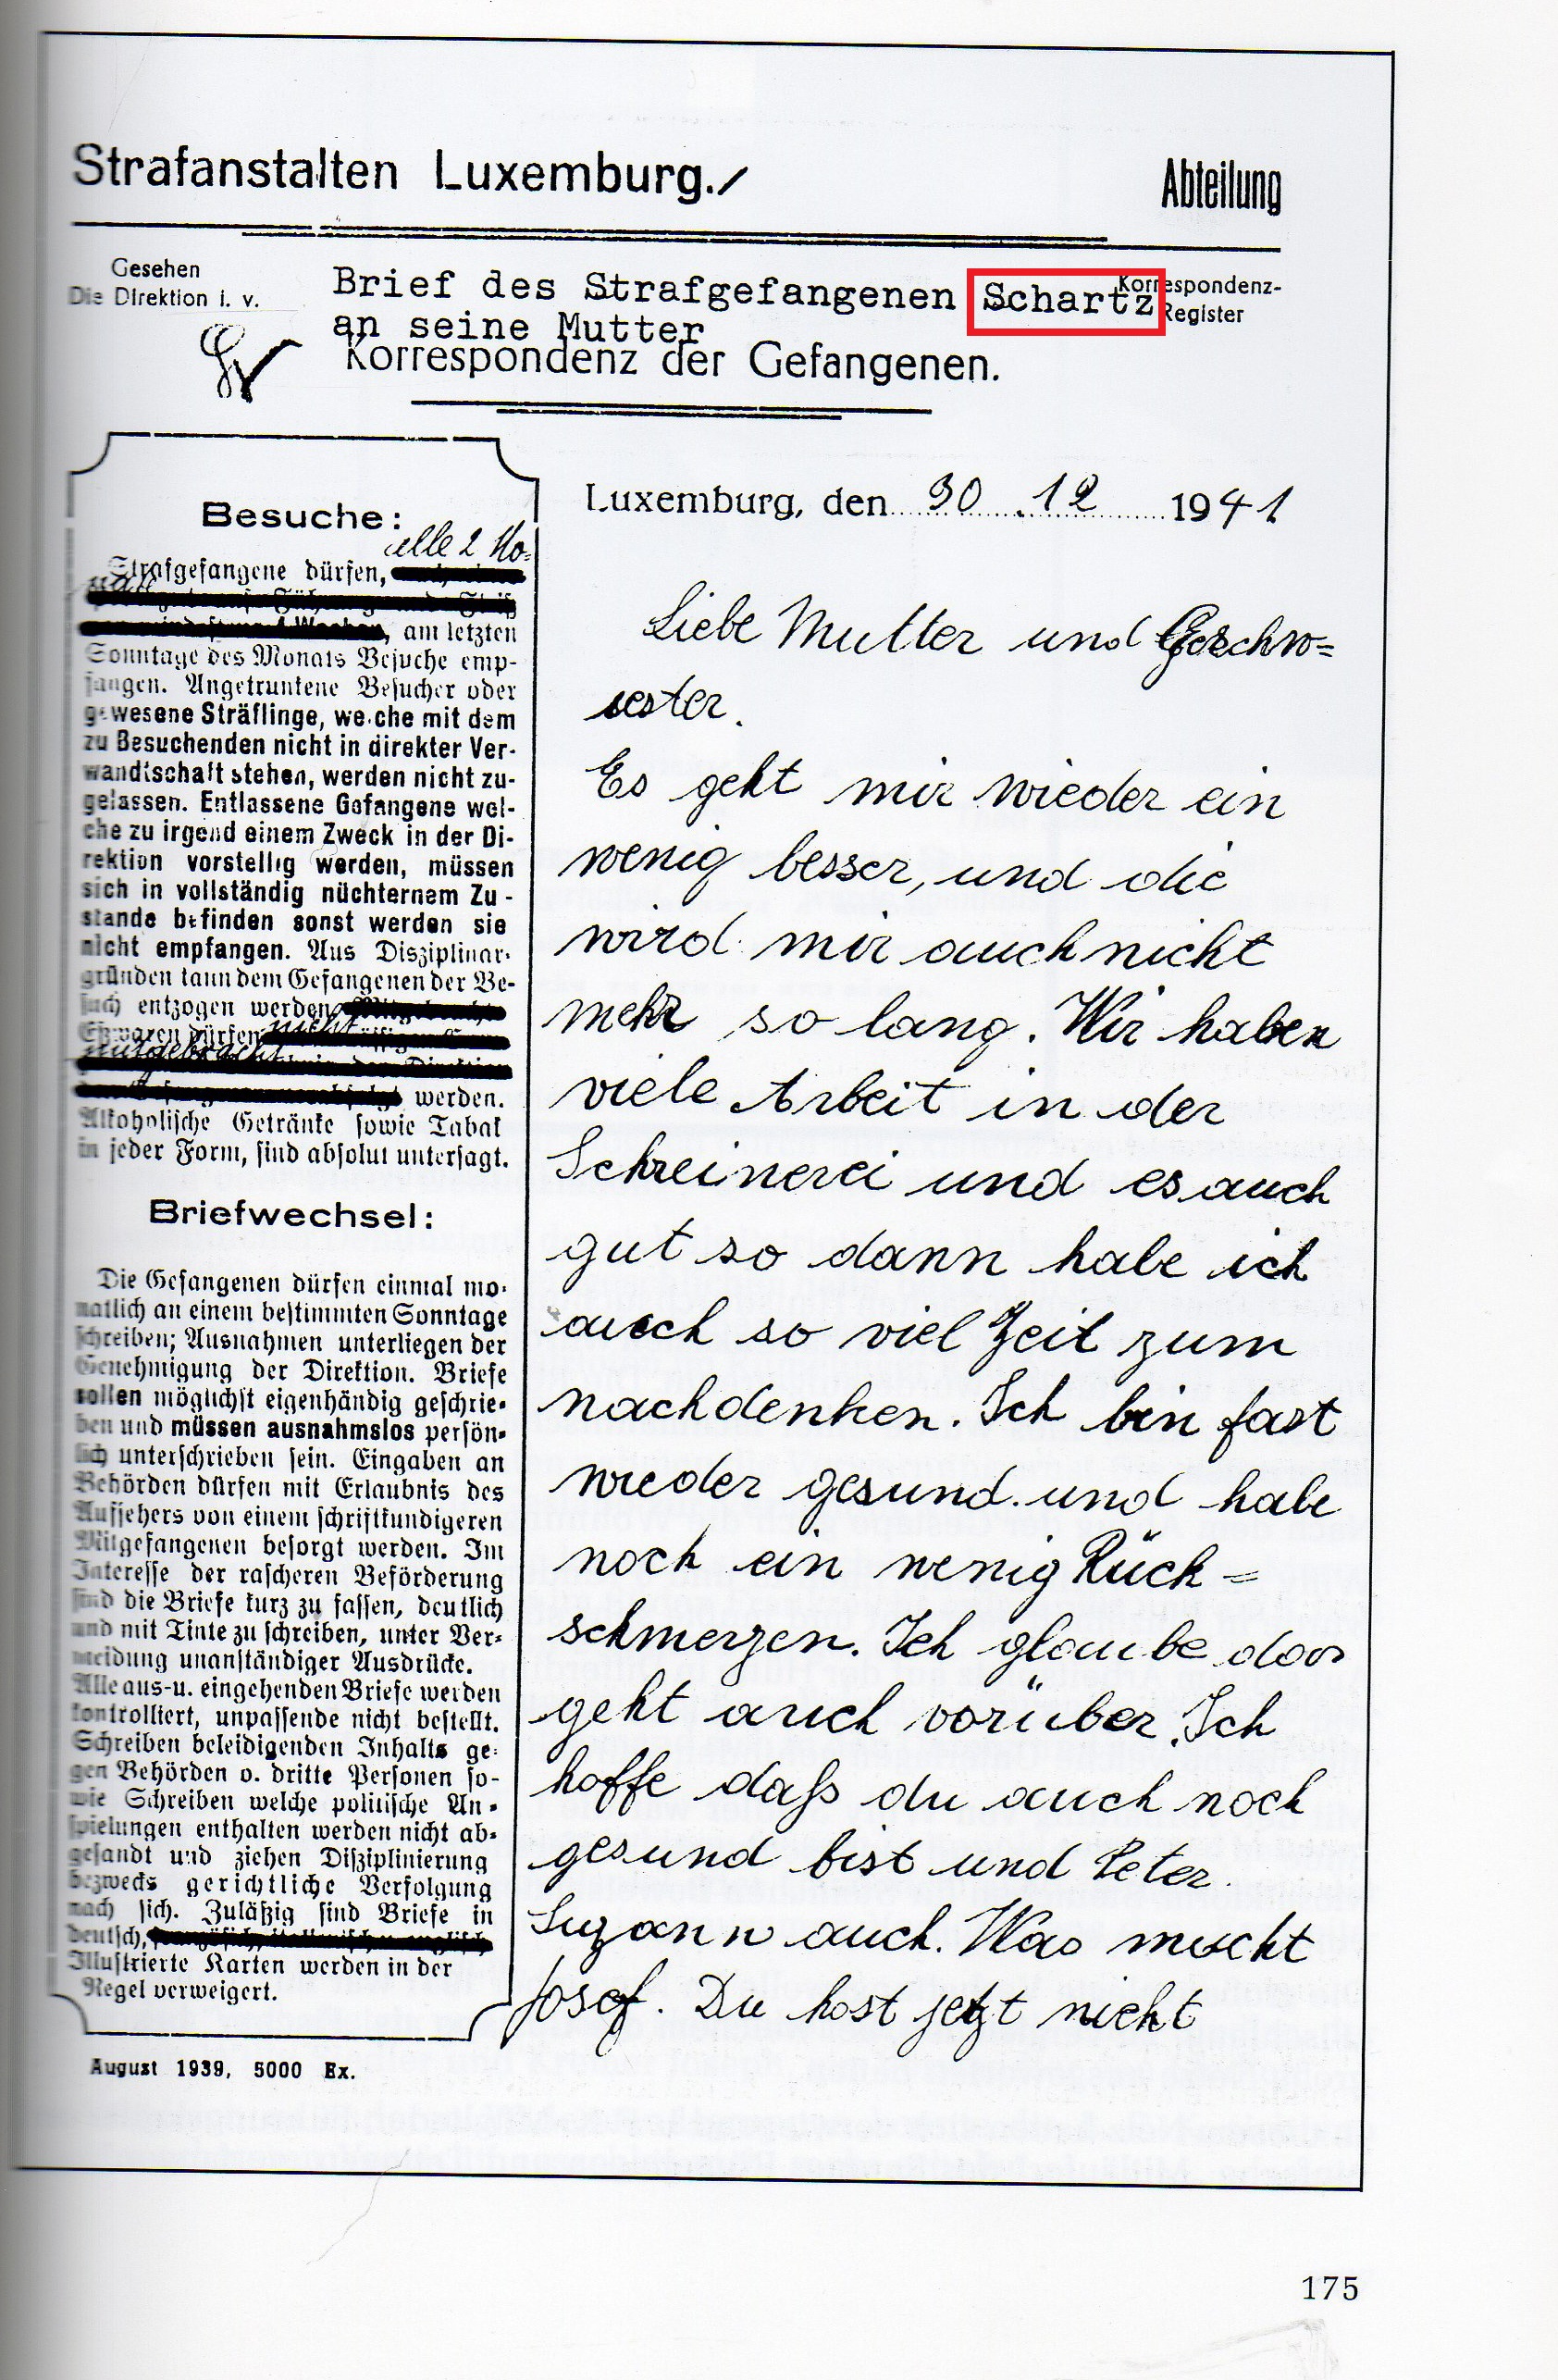 Strafanstalten Luxemburg./
Abteilung
Gesehen
Die Direktion i. v.
Brief des Strafgefangenen Schartz
an seine Mutter
Korrespondenz-
Register
Korrespondenz der Gefangenen.
Besuche:
alle 2 Mo-
Strafgefangene dürfen,
nate
, am letzten
Sonntage des Monats Besuche emp-
fangen. Angetrunkene Besucher oder
gewesene Sträflinge, welche mit dem
zu Besuchenden nicht in direkter Ver-
wandtschaft stehen, werden nicht zu-
gelassen. Entlassene Gefangene wel-
che zu irgend einem Zweck in der Di-
rektion vorstellig werden, müssen
sich in vollständig nüchternem Zu-
stande befinden sonst werden sie
nicht empfangen. Aus Disziplinar-
gründen kann dem Gefangenen der Be-
such entzogen werden
Eßwaren dürfen nicht
mitgebracht
werden.
Alkoholische Getränke sowie Tabak
in jeder Form, sind absolut untersagt.
Briefwechsel:
Die Gefangenen dürfen einmal mo-
natlich an einem bestimmten Sonntage
schreiben; Ausnahmen unterliegen der
Genehmigung der Direktion. Briefe
sollen möglichst eigenhändig geschrie-
ben und müssen ausnahmslos persön-
lich unterschrieben sein. Eingaben an
Behörden dürfen mit Erlaubnis des
Aufsehers von einem schriftkundigeren
Mitgefangenen besorgt werden. Im
Interesse der rascheren Beförderung
sind die Briefe kurz zu fassen, deutlich
und mit Tinte zu schreiben, unter Ver-
meidung unanständiger Ausdrücke.
Alle aus- u. eingehenden Briefe werden
kontrolliert, unpassende nicht bestellt.
Schreiben beleidigenden Inhalts ge-
gen Behörden o. dritte Personen so-
wie Schreiben welche politische An-
spielungen enthalten werden nicht ab-
gesandt und ziehen Disziplinierung
bezwecks gerichtliche Verfolgung
nach sich. Zuläßig sind Briefe in
deutsch,
Illustrierte Karten werden in der
Regel verweigert.
August 1939, 5000 Ex.
Luxemburg, den 30.12 1941
Liebe Mutter und Geschw=
sester.
Es geht mir wieder ein
wenig besser, und die
wird mir auch nicht
mehr so lang. Wir haben
viele Arbeit in der
Schreinerei und es auch
gut so dann habe ich
auch so viel Zeit zum
nachdenken. Ich bin fast
wieder gesund. und habe
noch ein wenig Rück=
schmerzen. Ich glaube das
geht auch vorüber. Ich
hoffe daß du auch noch
gesund bist und Peter.
Suzann auch. Was mscht
Josef. Du host jetzt nicht
175